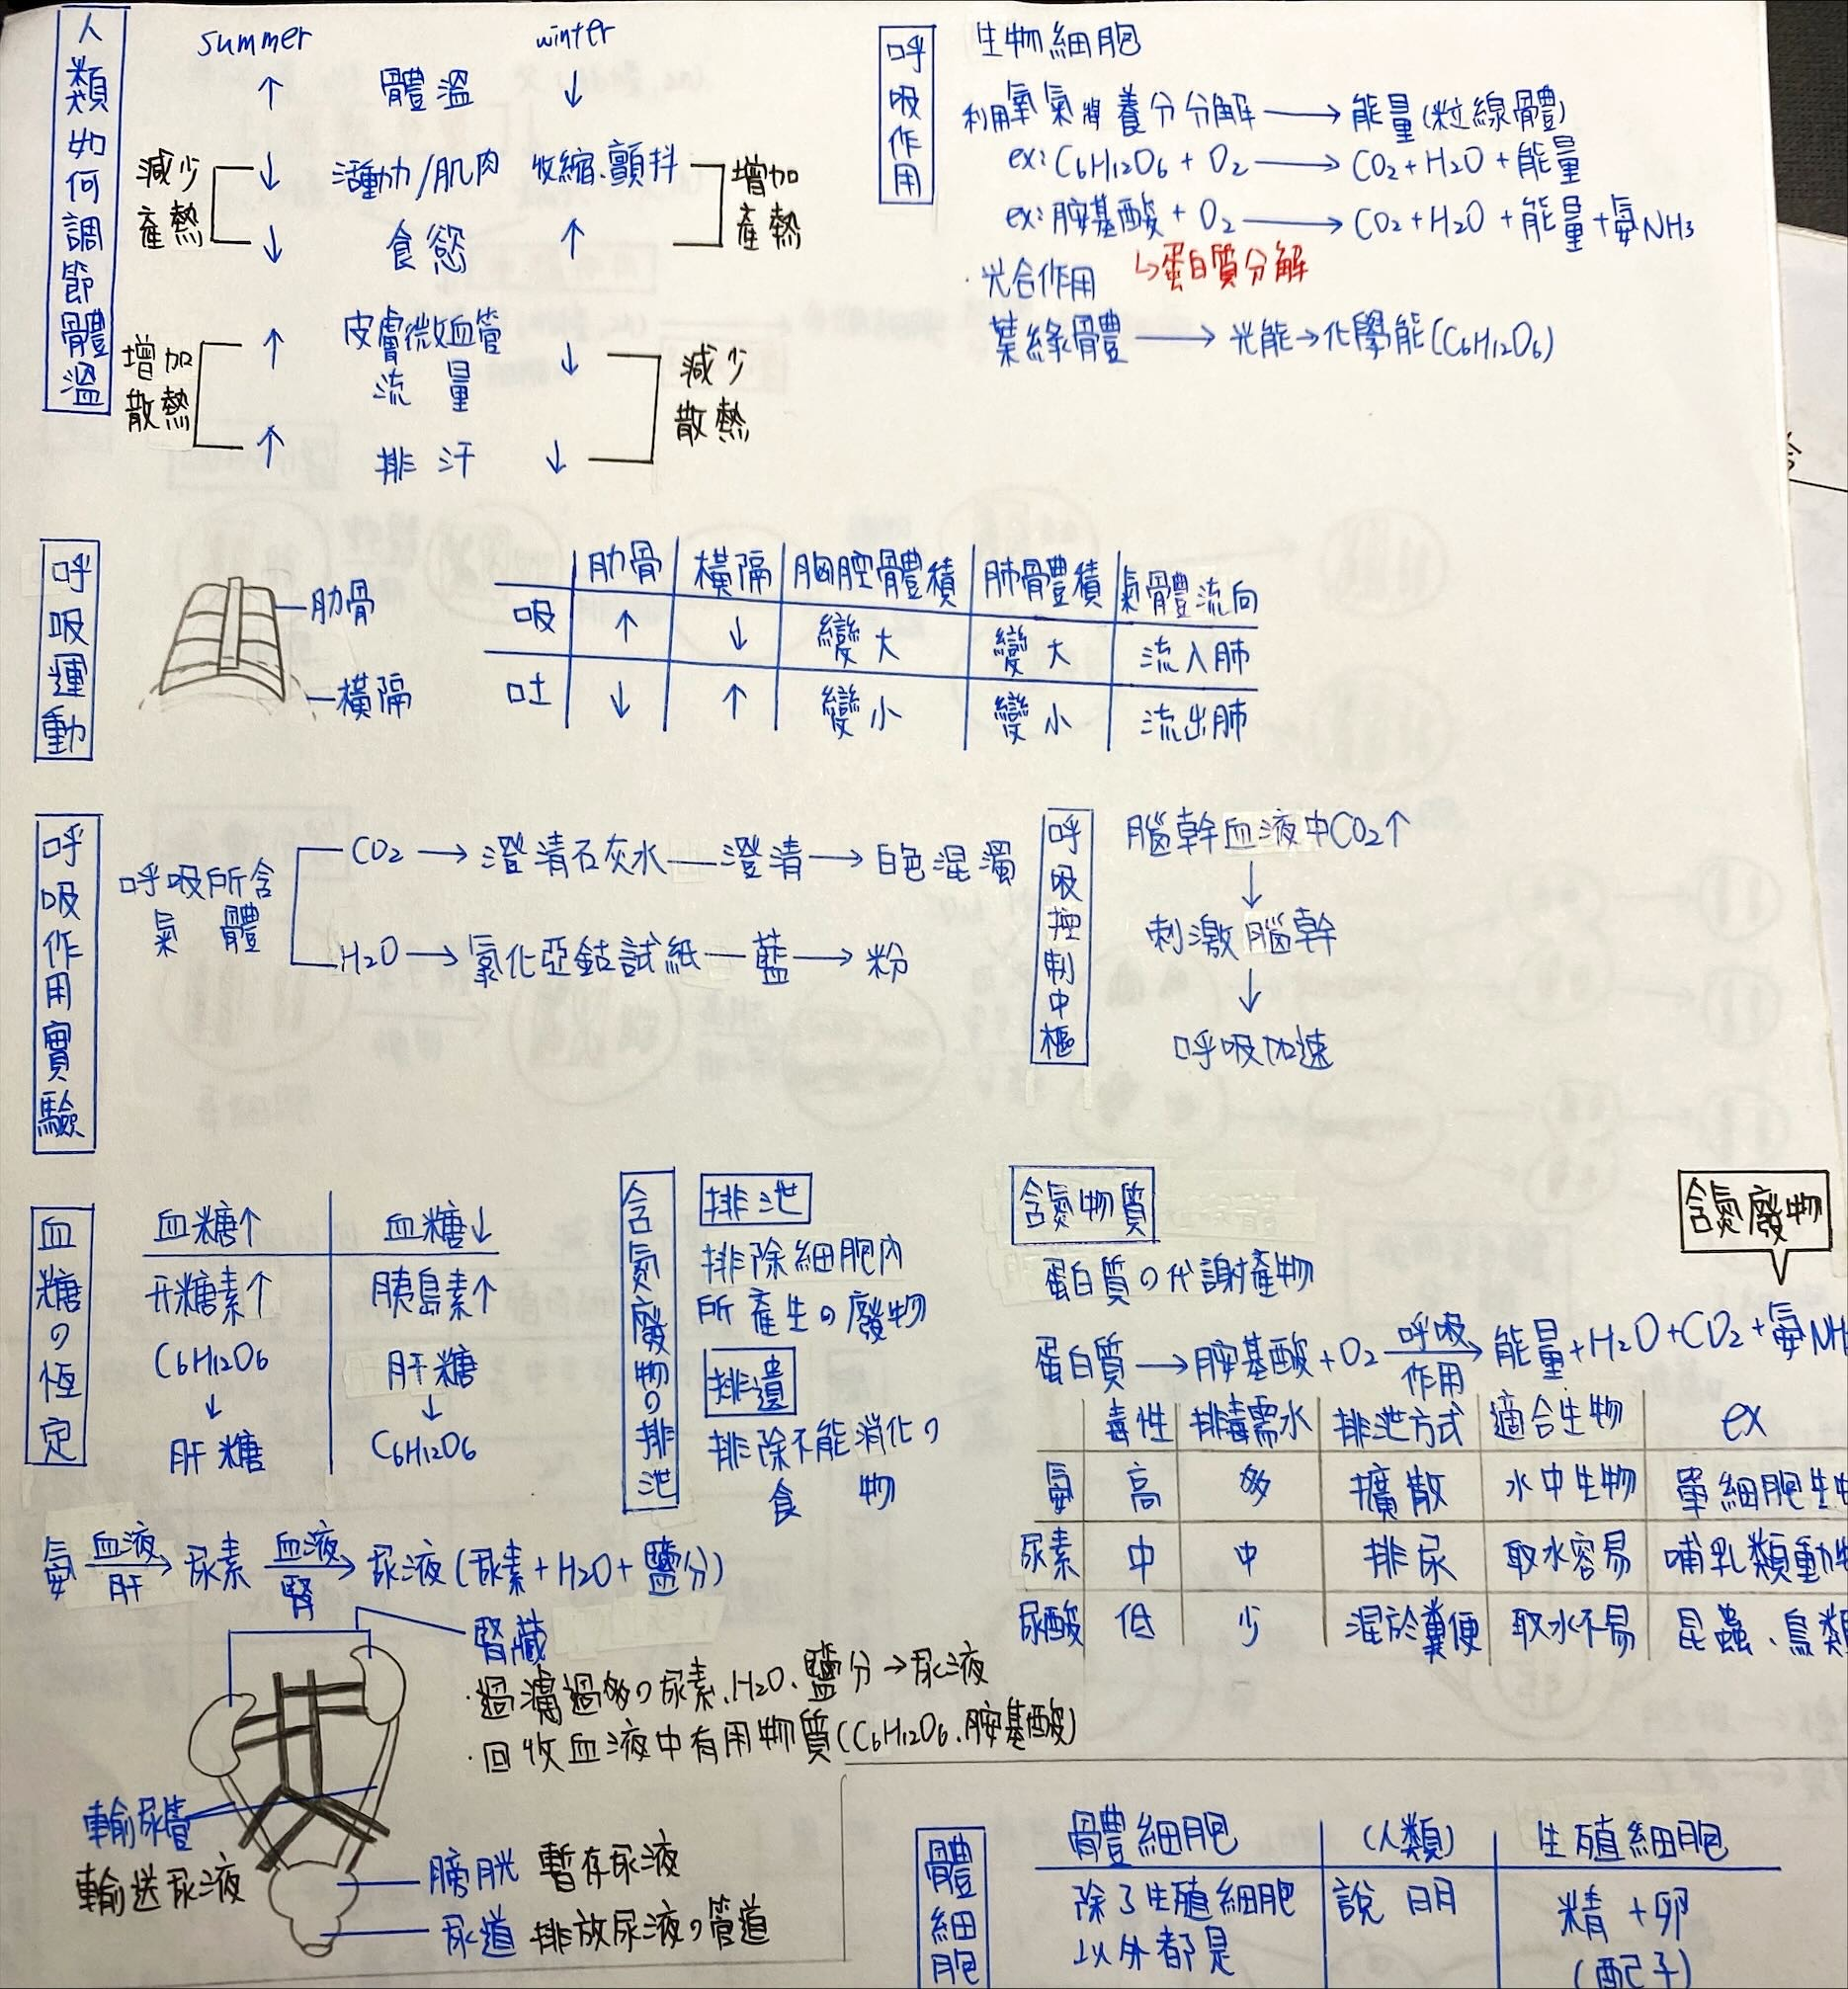 人類如何調節體溫
summer winter
↑ 體溫 ↓
減少產熱 ↓ 活動力/肌肉 收縮、顫抖 增加產熱
↓ 食慾 ↑
增加散熱 ↑ 皮膚微血管流量 ↓ 減少散熱
↑ 排汗 ↓
呼吸作用
生物細胞
利用氧氣將養分分解→能量(粒線體)
ex: C6H12O6 + O2 → CO2 + H2O + 能量
ex: 胺基酸 + O2 → CO2 + H2O + 能量 + 氨NH3
↳蛋白質分解
·光合作用
葉綠體→光能→化學能(C6H12O6)
呼吸運動
肋骨
橫隔
肋骨 橫隔 胸腔體積 肺體積 氣體流向
吸 ↑ ↓ 變大 變大 流入肺
吐 ↓ ↑ 變小 變小 流出肺
呼吸作用實驗
呼吸所含氣體
CO2→澄清石灰水—澄清→白色混濁
H2O→氯化亞鈷試紙—藍→粉
呼吸控制中樞
腦幹血液中CO2↑
↓
刺激腦幹
↓
呼吸加速
血糖の恆定
血糖↑ 血糖↓
升糖素↑ 胰島素↑
C6H12O6 肝糖
↓ ↓
肝糖 C6H12O6
含氮廢物の排泄
排泄
排除細胞內
所產生の廢物
排遺
排除不能消化の
食物
含氮物質
蛋白質の代謝產物
含氮廢物
蛋白質→胺基酸+O2 呼吸作用→能量+H2O+CO2+氨NH
毒性 排毒需水 排泄方式 適合生物 ex
氨 高 多 擴散 水中生物 單細胞生物
尿素 中 中 排尿 取水容易 哺乳類動物
尿酸 低 少 混於糞便 取水不易 昆蟲、鳥類
氨 血液/肝→尿素 血液/腎→尿液(尿素+H2O+鹽分)
腎臟
·過濾過多の尿素、H2O、鹽分→尿液
·回收血液中有用物質(C6H12O6、胺基酸)
輸尿管
輸送尿液
膀胱 暫存尿液
尿道 排放尿液の管道
體細胞
體細胞 (人類) 生殖細胞
除了生殖細胞 說明 精+卵
以外都是 (配子)